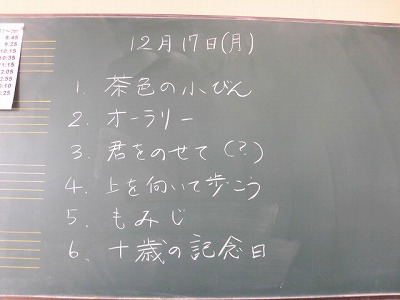 12月17日(月)
1. 茶色の小びん
2. オーラリー
3. 君をのせて(?)
4. 上を向いて歩こう
5. もみじ
6. 十歳の記念日
8:45
9:25
10:15
10:35
11:15